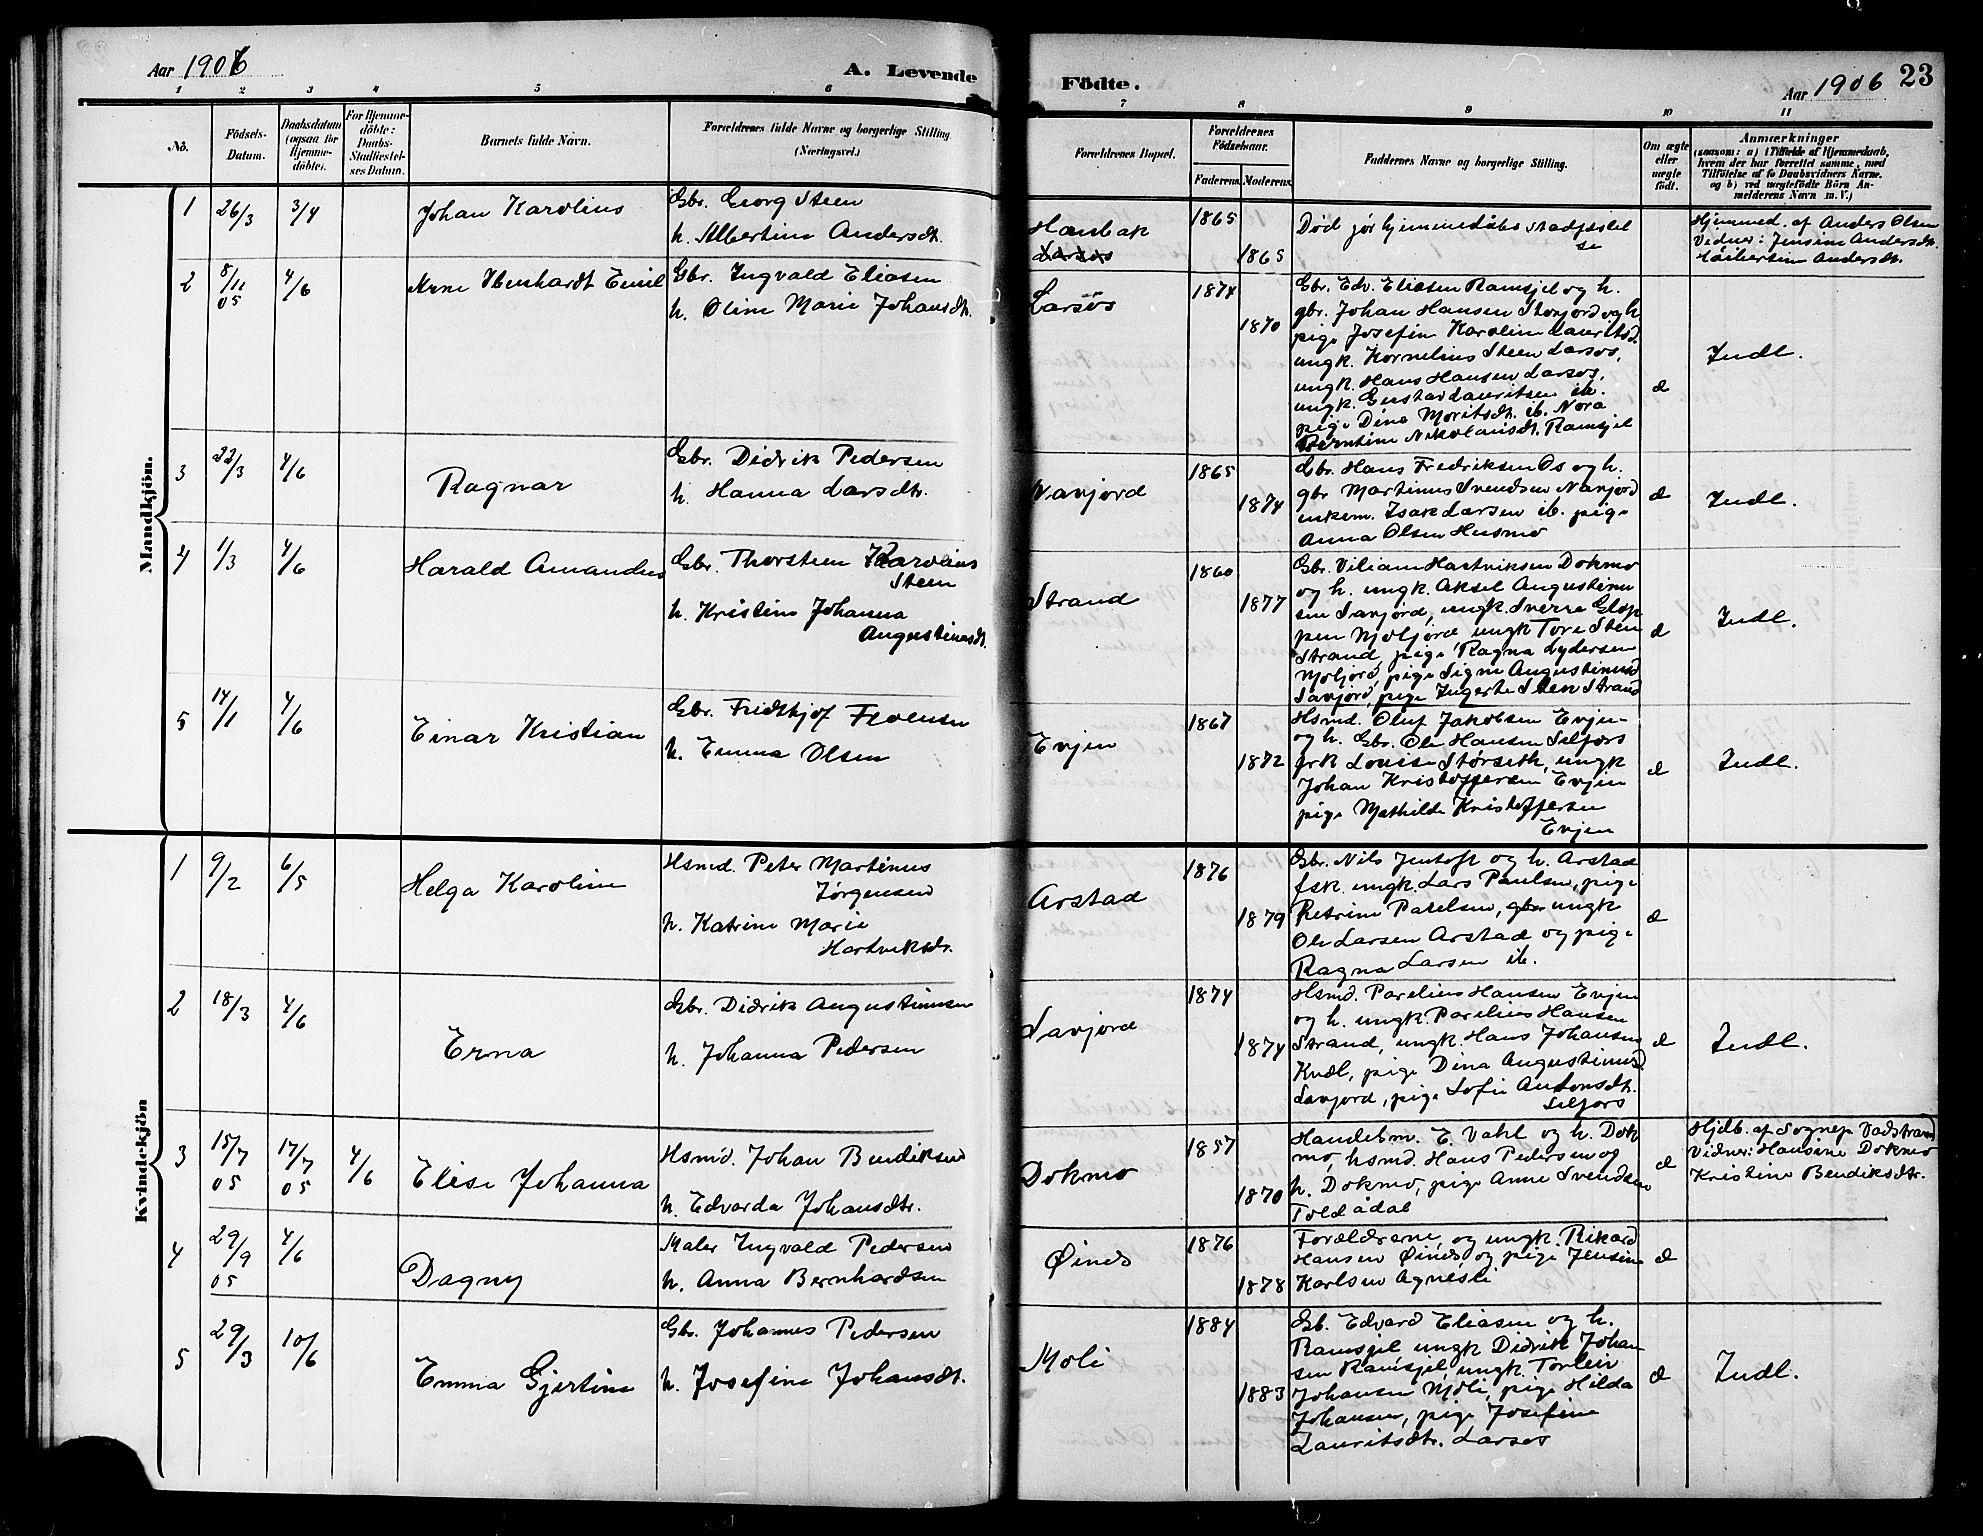 Aar 1906
A. Levende
Födte.
Aar 1906
23
1 2 3 4 5 6 7 8 9 10 11
No.
Födsels-
Datum.
Daabsdatum
(ogsaa for
Hjemme-
döbte).
For Hjemme-
döbte:
Daabs-
Stadfæstel-
ses Datum.
Barnets fulde Navn.
Forældrenes fulde Navne og borgerlige Stilling
(Næringsvei.)
Forældrenes Bopæl.
Forældrenes
Födselsaar.
Faderens. Moderens.
Faddernes Navne og borgerlige Stilling.
Om ægte
eller
uægte
födt.
Anmærkninger
(saasom: a) i Tilfælde af Hjemmedaab,
hvem der har forrettet samme, med
Tilföielse af to Daabsvidners Navne.
og b) ved uægtefödte Börn An-
melderens Navn m. V.)
Mandkjön.
1
26/3
3/4
Johan Karolius
Gbr. Georg Steen
h. Albertine Andersdt.
Haubak
Larsos
1865
1865
Død før hjemmedåbs stadfæstel
se
Hjemmed. af Anders Olsen
Vidner: Jensine Andersdt.
Andersdt.
2
8/11
05
4/6
Arne Ebenhardt Emil
Gbr. Ingvald Eliasen
h. Oline Marie Johansdt.
Larsos
1874
1870
Gbr. Edv. Eliasen Ramsjel og h.
gbr. Johan Hansen Storjord og h.
pige Josefine Karoline Lauritsd.
ungk. Kornelius Steen Larsos,
ungk. Hans Hansen Larsos,
ungk. Gustav Lauritsen ib.
pige Dina Moritsdt. ib. Nora
Berntine Nikolaisdt. Ramsjel
æ
Indl.
3
22/3
4/6
Ragnar
Gbr. Didrik Pedersen
h. Hanna Larsdtr.
Navjord
1865
1874
Gbr. Hans Fredriksen Os og h.
gbr Martinus Svendsen Navjord
enkem. Isak Larsen ib. pige
Anna Olsen Husmo
æ
Indl.
4
1/3
4/6
Harald Amandus
Gbr. Thorsteen Karolius
Steen
h. Kristine Johanna
Augustinusdt.
Strand
1860
1877
Gbr. Viliam Hartviksen Dokmo
og h. ungk. Aksel Augustinu
sen Savjord, ungk. Sverre Gløp
pen Mjoljord ungk Tore Steen
Strand, pige Ragna Lydersen
Moljord, pige Signe Augustinusd
Savjord, pige Ingerte Steen Strand
æ
Indl.
5
14/1
4/6
Einar Kristian
Gbr. Fridthjof Evensen
h. Emma Olsen
Evjen
1867
1872
Hsmd. Oluf Jakobsen Evjen
og h. Gbr. Ole Hansen Selfors
frk Louise Størseth, ungk
Johan Kristoffersen Evjen
pige Mathilde Kristoffersen
Evjen
æ
Indl.
Kvindekjön
1
9/2
6/5
Helga Karoline
Hsmd. Peter Martinus
Jørgensen
h. Katrine Marie
Hartviksdr.
Arstad
1876
1879
Gbr. Nils Jentoft og h. Arstad
fsk. ungk. Lars Paulsen, pige
Petrine Paulsen, gbr ungk
Ole Larsen Arstad og pige
Ragna Larsen ib.
æ
2
18/3
4/6
Erna
Gbr. Didrik Augustinusen
h. Johanna Pedersen
Savjord
1874
1874
Hsmd. Parelius Hansen Evjen
og h. ungk. Parelius Hansen
Strand, ungk. Hans Johansen
Kvæl, pige Dina Augustinusd
Savjord, pige Sofie Antonsdt.
Selfors
æ
Indl.
3
15/7
05
17/7
05
4/6
Elise Johanna
Hsmd. Johan Bendiksen
h. Edvarda Johansdtr.
Dokmo
1857
1870
Handelsm. E. Vahl og h. Dok
mo, hsmd. Hans Pedersen og
h. Dokmo, pige Anne Svendsen
Toldådal
æ
Hjdb. af Sognep Vadstrand
Vidner: Hansine Dokmo
Kristine Bendiksdtr.
4
29/9
05
4/6
Dagny
Maler Ingvald Pedersen
h. Anna Bernhardsen
Øines
1876
1878
Forældrene, og ungk. Rikard
Hansen Øines og pige Jensine
Karlsen Agnesli
æ
5
29/3
10/6
Emma Gjertine
Gbr. Johannes Pedersen
h. Josefine Johansdt.
Moli
1884
1883
Gb. Edvard Eliasen og h.
Ramsjel ungk Didrik Johan
sen Ramsjel, ungk. Torleiv
Johansen Mjoli, pige Hilda
Johansen, pige Josefine
Lauritsdtr. Larsos
æ
Indl.